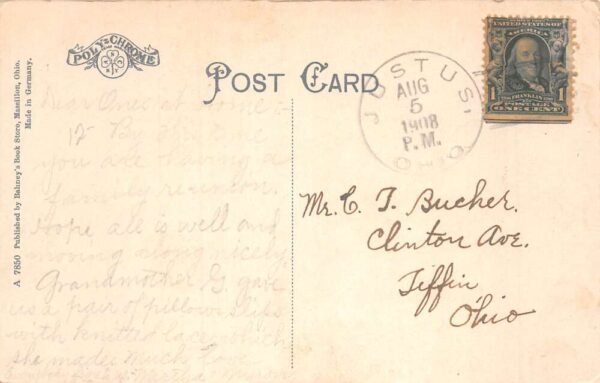 POLY-CHROME
POST CARD
A 7850 Published by Bahney's Book Store, Massillon, Ohio.
Made in Germany.
JUSTUS
AUG
5
1908
P.M.
OHIO
UNITED STATES OF
AMERICA
1 FRANKLIN 1
POSTAGE
ONE CENT
Dear Ones at home
12 By
you are having a
family reunion.
Hope all is well and
moving along nicely
Grandmother G gave
us a pair of pillow slips
with knitted lace which
she made. Much love
Martha Myron
Mr. C. T. Bucher.
Clinton Ave.
Tiffin
Ohio